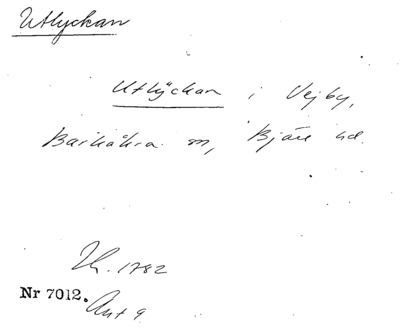 Utlyckan
Utlyckan i Vejby,
Barkåkra sn, Bjäre hd.
Lh. 1782
Nr 7012.
Ant 9